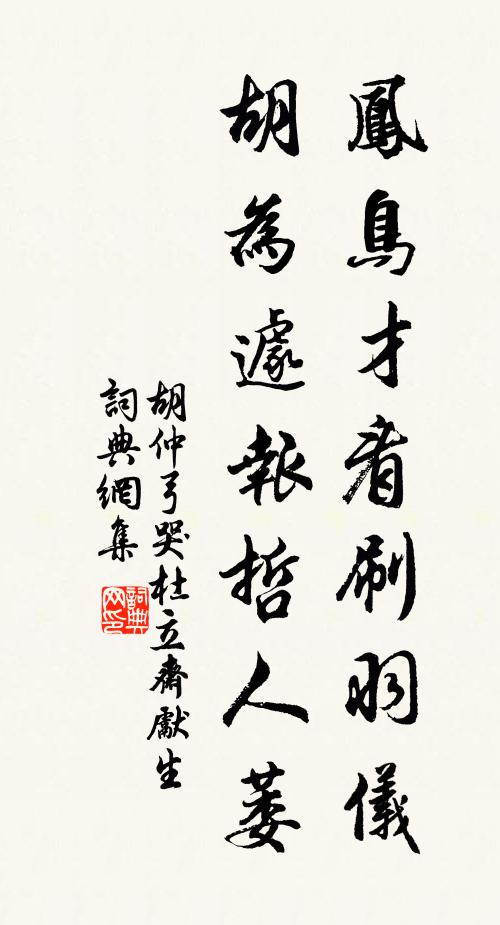 鳳鳥才看刷羽儀
胡為遽報哲人萎
胡仲弓哭杜立齋獻生
詞典網集
詞典网印